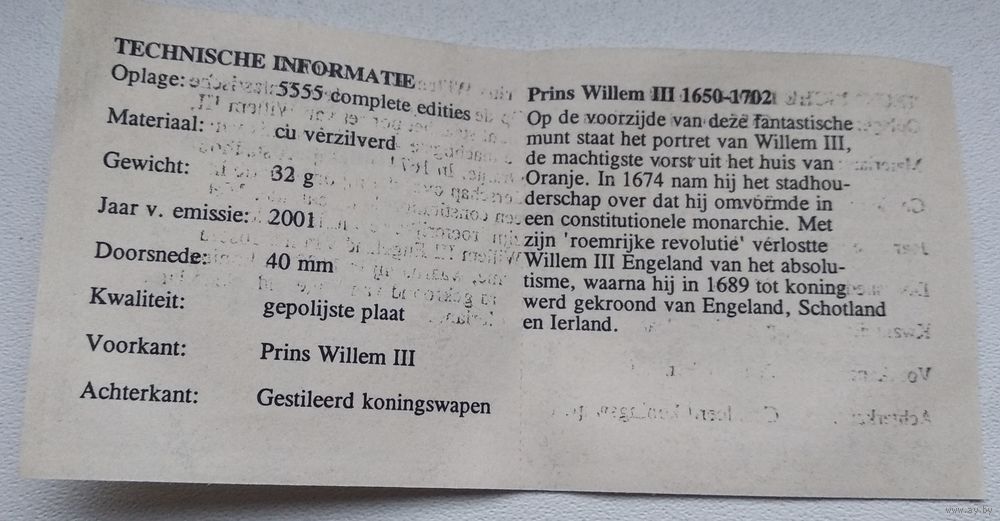 TECHNISCHE INFORMATIE
Oplage: 5555 complete edities
Materiaal: cu verzilverd
Gewicht: 32 g
Jaar v. emissie: 2001
Doorsnede: 40 mm
Kwaliteit: gepolijste plaat
Voorkant: Prins Willem III
Achterkant: Gestileerd koningswapen
Prins Willem III 1650-1702
Op de voorzijde van deze fantastische
munt staat het portret van Willem III,
de machtigste vorst uit het huis van
Oranje. In 1674 nam hij het stadhou-
derschap over dat hij omvormde in
een constitutionele monarchie. Met
zijn 'roemrijke revolutie' verlostte
Willem III Engeland van het absolu-
tisme, waarna hij in 1689 tot koning
werd gekroond van Engeland, Schotland
en Ierland.
www.ay.by